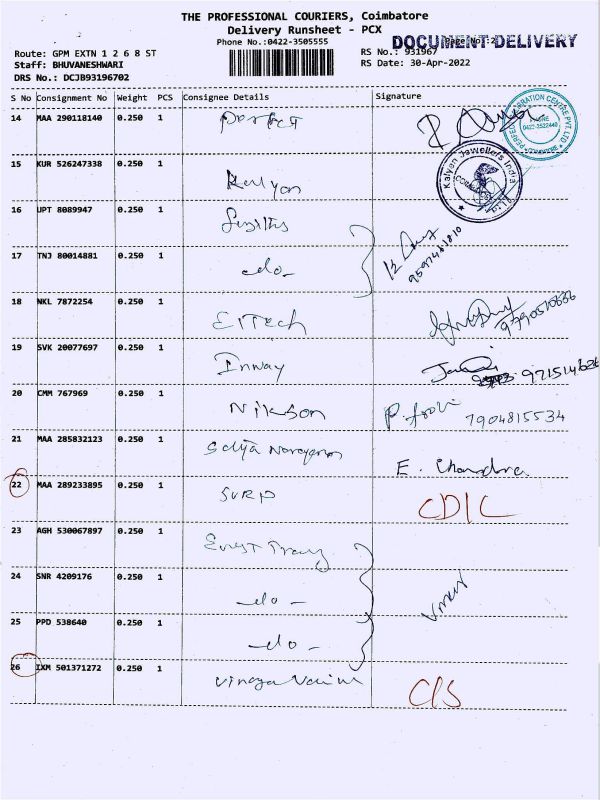 THE PROFESSIONAL COURIERS, Coimbatore
Delivery Runsheet - PCX
Phone No.:0422-3505555
DOCUMENT DELIVERY
Page No: 2
Route: GPM EXTN 1 2 6 8 ST
RS No.: 931967
Staff: BHUVANESHWARI
RS Date: 30-Apr-2022
DRS No.: DCJB93196702
S No Consignment No Weight PCS Consignee Details Signature
14 MAA 290118140 0.250 1 Perfect
0422-3522440
15 KUR 526247338 0.250 1 Kalyan
Kalyan Jewellers India Ltd
16 UPT 8089947 0.250 1
9597481810
17 TNJ 80014881 0.250 1 -do-
18 NKL 7872254 0.250 1 EITech
9790570636
19 SVK 20077697 0.250 1 Inway
20 CMM 767969 0.250 1 Nilkson
7904815534
21 MAA 285832123 0.250 1 Sathya Narayanan E. Chandra
22 MAA 289233895 0.250 1 SVRP CDIC
23 AGH 530067897 0.250 1
24 SNR 4209176 0.250 1 -do-
25 PPD 538640 0.250 1 -do-
26 IXM 501371272 0.250 1 C/S